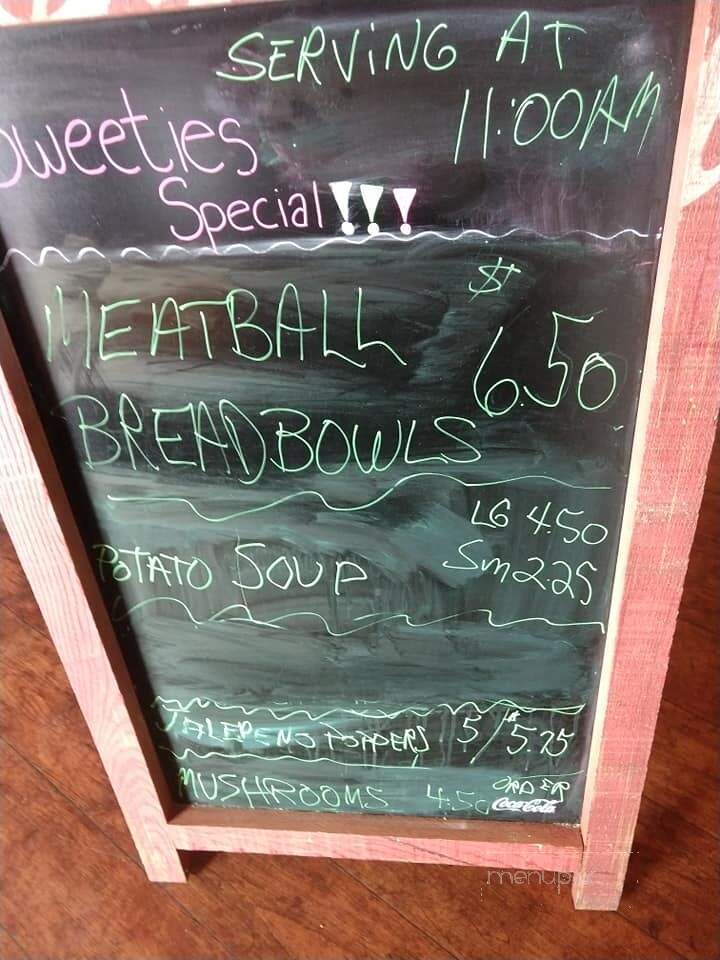 SERVING AT
11:00AM
Sweeties
Special!!!
MEATBALL $6.50
BREADBOWLS
LG 4.50
POTATO SOUP Sm 2.25
JALEPENO POPPERS 5/5.75
MUSHROOMS 4.50 ORDER
Coca-Cola
menupix